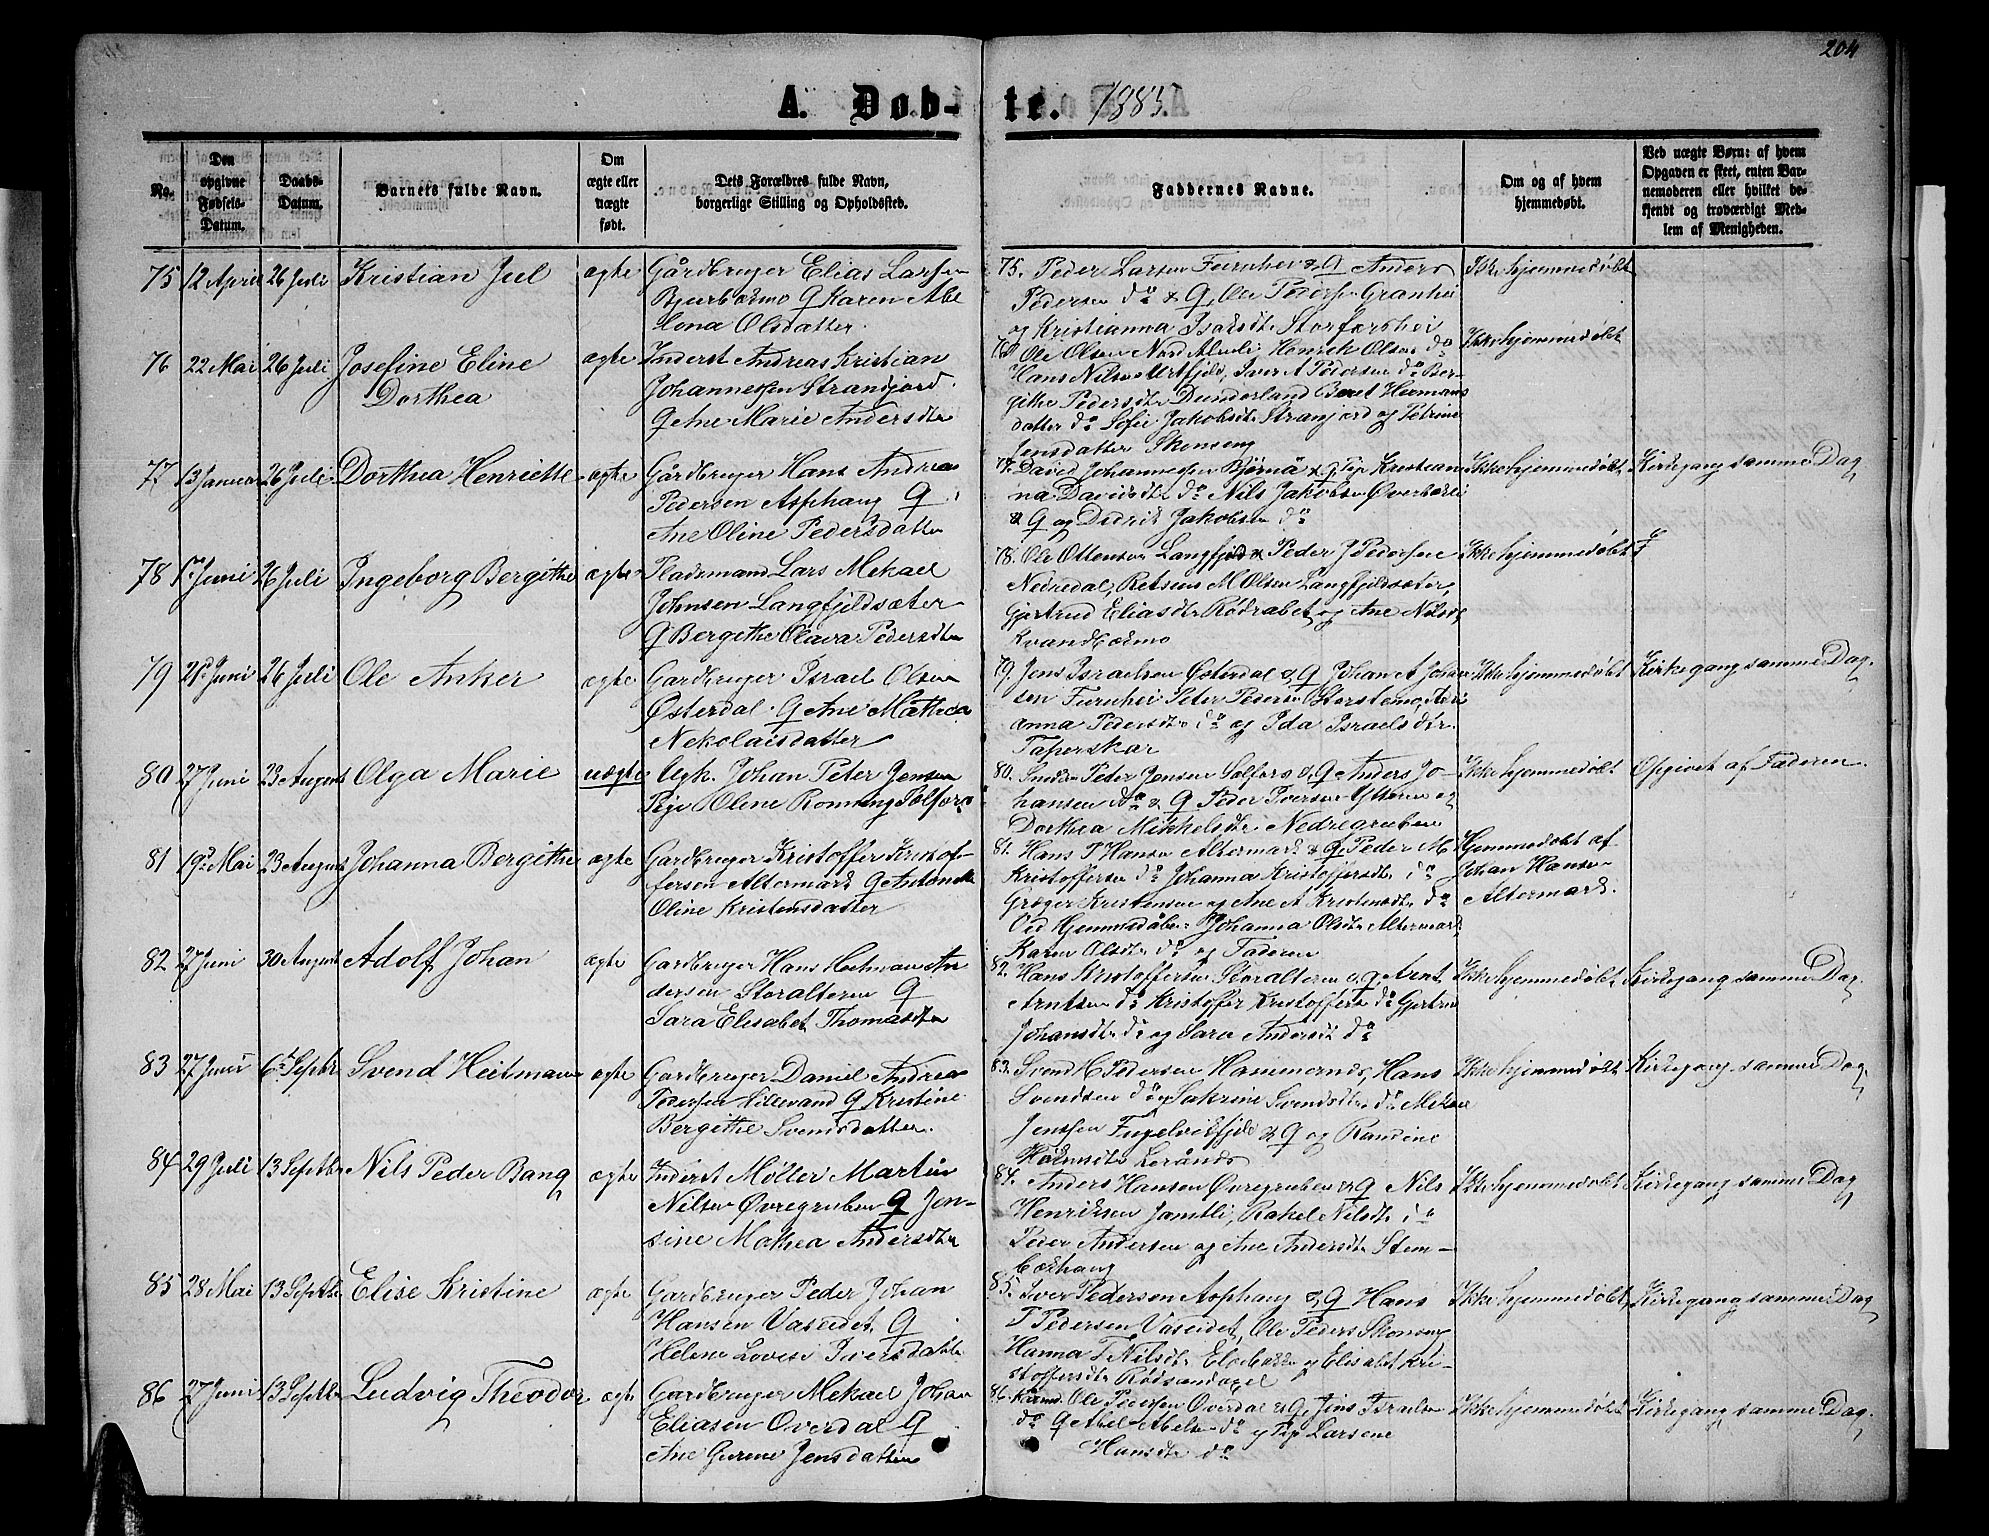 204
A. Døb-te. 1885.
No.
Den opgivne Fødsels-Datum.
Daabs-Datum.
Barnets fulde Navn.
Om ægte eller uægte født.
Dets Forældres fulde Navn, borgerlige Stilling og Opholdssted.
Faddernes Navne.
Om og af hvem hjemmedøbt.
Ved uægte Børn: af hvem Opgaven er skeet, enten Barnemoderen eller hvilket bekjendt og troværdigt Medlem af Menigheden.
75 12 April 26 Juli Kristian Juel ægte Gårdbruger Elias Larsen
Bjurbækmo & Karen Abe
lona Olsdatter.
75. Peder Larsen Furuhei & Anders
Pedersen do & Ole Pedersen Granhei
og Kristianna Isaksdtr Storforshei
Ikke hjemmedøbt
76 22 Mai 26 Juli Josefine Eline
Dorthea
ægte Inderst Andreas Kristian
Johannessen Strandjord.
& Ane Marie Andersdtr
76 Ole Olsen Nord Henrik Olsen do
Hans Nilsen Urtfjeld, Iver A Pedersen do Ber-
gitte Pedersdtr Dunderland Beret Hermans
datter do Sofie Jakobsdtr Stranjord og Petrine
Jensdatter Skonseng
Ikke hjemmedøbt
77 13 Januar 26 Juli Dorthea Henriette ægte Gårdbruger Hans Andreas
Pedersen Asphaug &
Ane Oline Pedersdatter
77. David Johannesen Bjørnå & Pige Kristian
na Davidsdtr do Nils Jakobsen Øverbækli
& og Dedrik Jakobsen do
Ikke hjemmedøbt Kirkegang samme Dag
78 1ste Juni 26 Juli Ingeborg Bergithe ægte Pladsmand Lars Mekael
Johnsen Langfjeldsæter
& Bergithe Olava Pedersdtr
78. Ole Ottensen Langfjeld & Peder J Pedersen
Nedredal, Retsius M Olsen Langfjeldsæter,
Gjertrud Eliasdtr Rødsabet og Ane Nilsd
Kvandbækmo
Ikke hjemmedøbt
79 21de Juni 26 Juli Ole Anker ægte Gardbruger Israel Olsen
Østerdal & Ane Mathea
Nekolaisdatter
79. Jens Israelsen Østerdal & Johan A Johan
sen Furuhei Peter Pedersen Storstenmo,
anna Pedersdtr do og Ida Israelsdtr
Taperskar
Ikke hjemmedøbt Kirkegang samme Dag.
80 27 Juni 23 August Olga Marie uægte Ugk. Johan Peter Jensen
Pige Oline Rønning Selfors
80. Peter Jensen Selfors & Anders Jo-
hansen do & Peder Iversen Ytteren og
Dorthea Mikkelsdtr Nedregruben
Ikke hjemmedøbt Opgivet af Faderen.
81 19de Mai 23 August Johanna Bergithe ægte Gardbruger Kristoffer Kristof-
fersen Altermark & Antonette
Oline Kristensdatter
81. Hans P Hansen Altermark & Peder M
Kristoffersen do Johanna Kristoffersdtr do
Grøger Kristensen og Ane A Kristensdtr do
Ved Hjemmedåben Johanna Olsdtr Altermark
Karen Olsdtr do og Faderen
Hjemmedøbt af
Johan Hansen
Altermark.
82 27 Juni 30 August Adolf Johan ægte Gardbruger Hans Heitman An
dersen Storalteren &
Sara Elisabet Thomasdtr
82. Hans Kristoffersen Storalteren & Arnt
Arntsen do Kristoffer Kristoffersen do Gjertrud
Johansdtr do og Sara Andersdtr do
Ikke hjemmedøbt Kirkegang samme Dag.
83 27 Juni 6te Septbr Svend Heitmann ægte Gardbruger Daniel Andreas
Pedersen Hillevand & Kristine
Bergithe Svendsdatter.
83. Svend C Pedersen Hammernes, Hans
Svendsen do og Sakrine Svendsdtr do Mekael
Jenssen Fugelvikfjeld & og Randine
Holmsdtr Leränds
Ikke hjemmedøbt Kirkegang samme Dag
84 29 Juli 13 Septbr Nils Peder Bang ægte Inderst Møller Martin
Nilsen Øvregruben & Jen-
sine Mathea Andersdtr
84. Anders Hansen Øvregruben & Nils
Henriksen Jamtli, Rakel Nilsdtr do
Peder Andersen og Ane Andersdtr Stem-
bækhaug
Ikke hjemmedøbt Kirkegang samme Dag
85 28 Mai 13 Septbr Elise Kristine ægte Gardbruger Peder Johan
Hansen Vaseidet &
Helene Lovise Iversdatter
85. Iver Pedersen Asphaug & Hans
P Pedersen Vaseidet, Ole Peders Skonseng
Hanna F Nilsdtr og Elisabet Kri-
stoffersdtr Rødsandaxel
Ikke hjemmedøbt, Kirkegang samme Dag
86 27 Juni 13 Septbr Ludvig Theodor ægte Gardbruger Mekael Johan
Eliasen Overdal &
Ane Gurine Jensdatter
86. Ole Pedersen Overdal & Jens Israelsen
do & Abel Abelsen do og Pige Larsene
Hansdtr do
Ikke hjemmedøbt Kirkegang samme Dag.